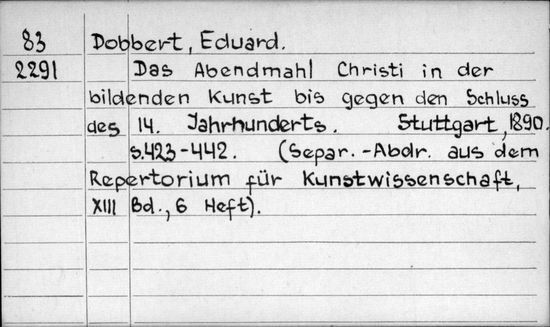 83 Dobbert, Eduard.
2291 Das Abendmahl Christi in der
bildenden Kunst bis gegen den Schluss
des 14. Jahrhunderts. Stuttgart, 1890.
S.423-442. (Separ.-Abdr. aus dem
Repertorium für Kunstwissenschaft,
XIII Bd., 6 Heft).